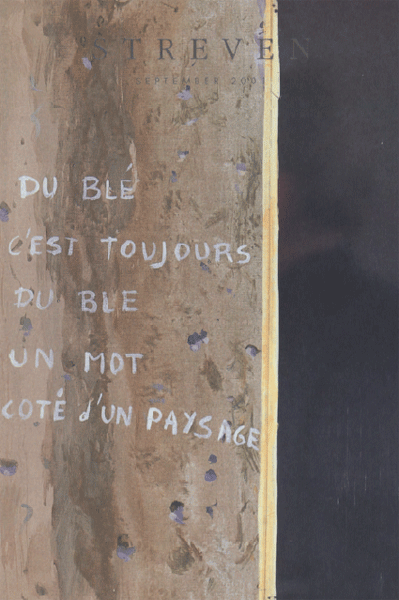 STREVEN
SEPTEMBER 2001
DU BLÉ
C'EST TOUJOURS
DU BLE
UN MOT
COTÉ d'UN PAYSAGE